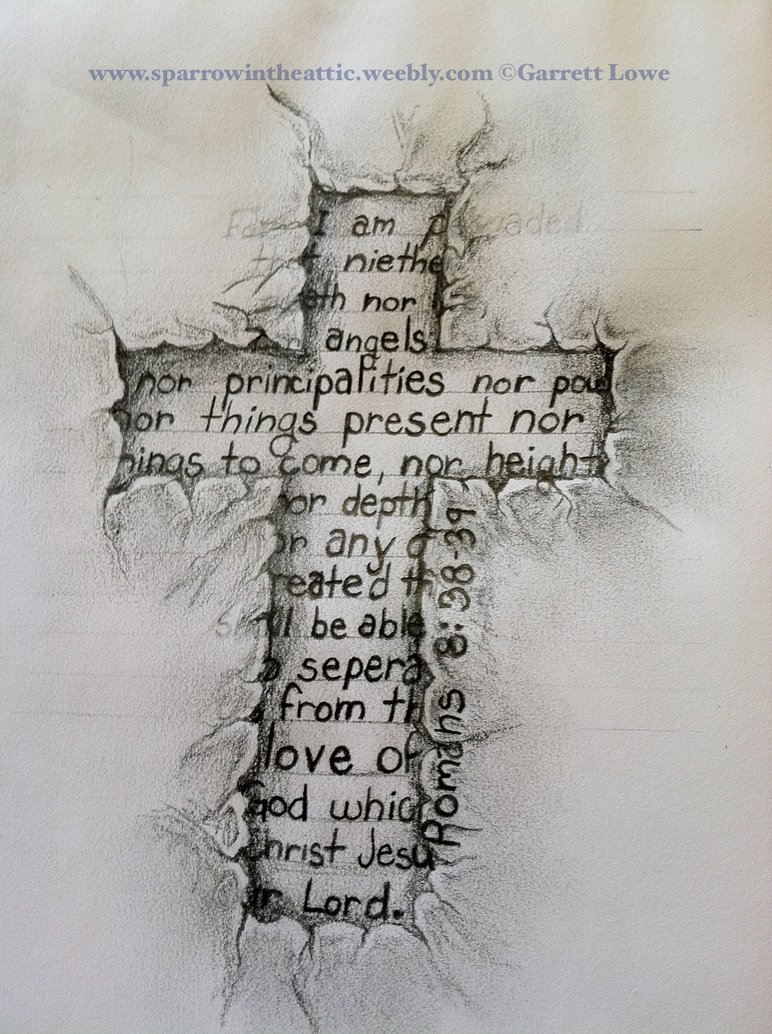 www.sparrowintheattic.weebly.com ©Garrett Lowe
For I am p uaded
that niethe
eth nor l
nor angels
nor principalities nor pow
nor things present nor
hings to come, nor height
nor depth
or any o
reated th
shall be able
o sepera
from th
love of
God whic
Christ Jesu
ur Lord.
Romans 8:38-39